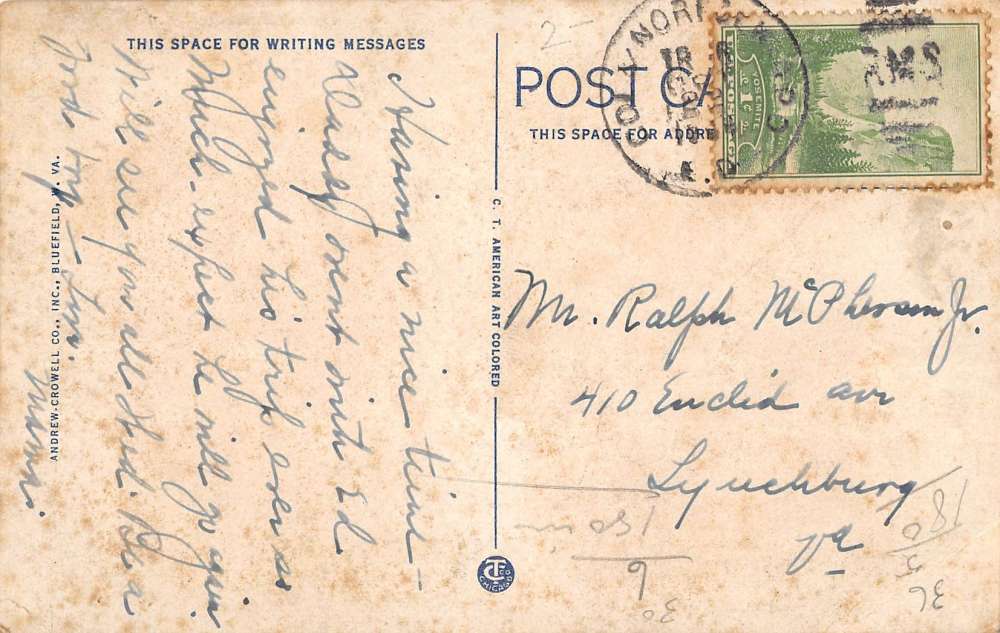 THIS SPACE FOR WRITING MESSAGES
Having a nice time –
Daddy went with Ed
enjoyed his trip ever so
much – expect he will go again
Will see you all Wed. Be a
Good boy – Love.
Mama.
ANDREW-CROWELL CO., INC., BLUEFIELD, W. VA.
C. T. AMERICAN ART COLORED
POST CA
THIS SPACE FOR ADDRE
NORF
RMS
YOSEMITE
1¢
Mr. Ralph McPherson Jr.
410 Euclid ave
Lynchburg
Va
CHICAGO
2-
180
150
6
30
36